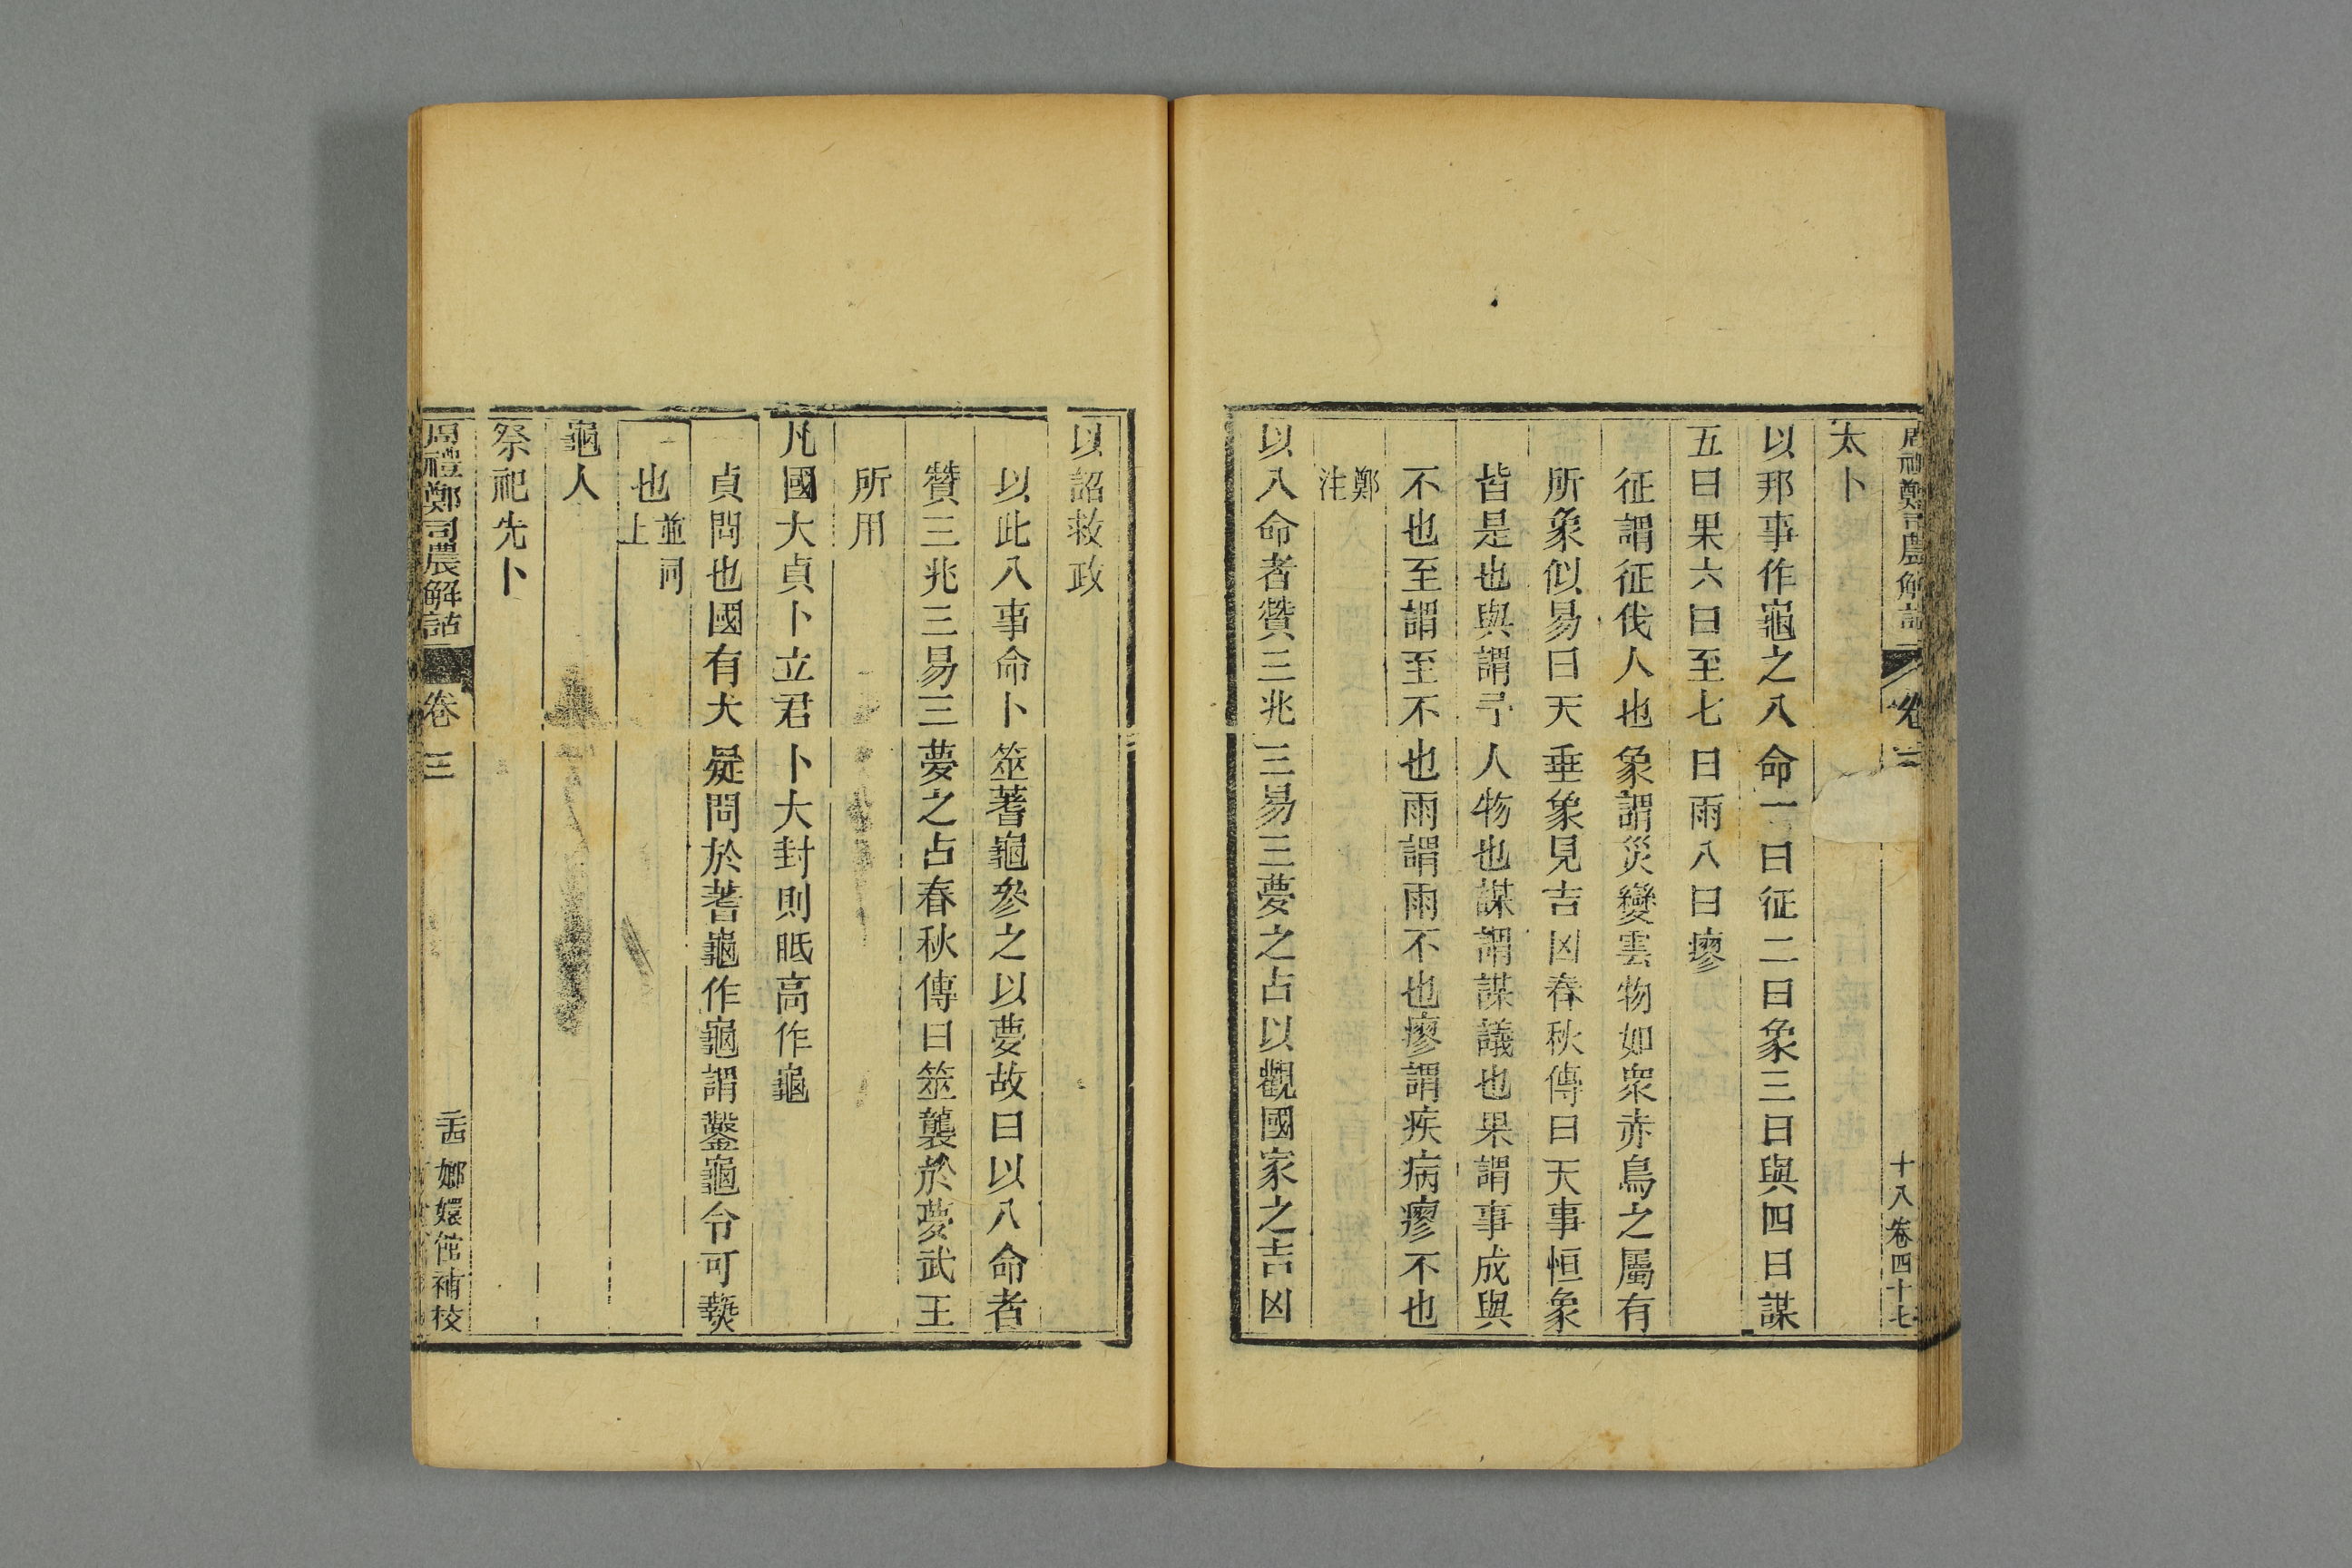 周禮鄭司農解詁 卷三 十八 卷四十七
太卜
以邦事作龜之八命一曰征二曰象三曰與四曰謀
五曰果六曰至七曰雨八曰瘳
征謂征伐人也象謂災變雲物如眾赤鳥之屬有
所象似易曰天垂象見吉凶春秋傳曰天事恒象
皆是也與謂予人物也謀謂謀議也果謂事成與
不也至謂至不也雨謂雨不也瘳謂疾病瘳不也
鄭
注
以八命者贊三兆三易三夢之占以觀國家之吉凶
以詔救政
以此八事命卜筮蓍龜參之以夢故曰以八命者
贊三兆三易三夢之占春秋傳曰筮襲於夢武王
所用
凡國大貞卜立君卜大封則眡高作龜
貞問也國有大疑問於蓍龜作龜謂鑿龜令可爇
也並同
上
龜人
祭祀先卜
周禮鄭司農解詁 卷三 嫏嬛館補校